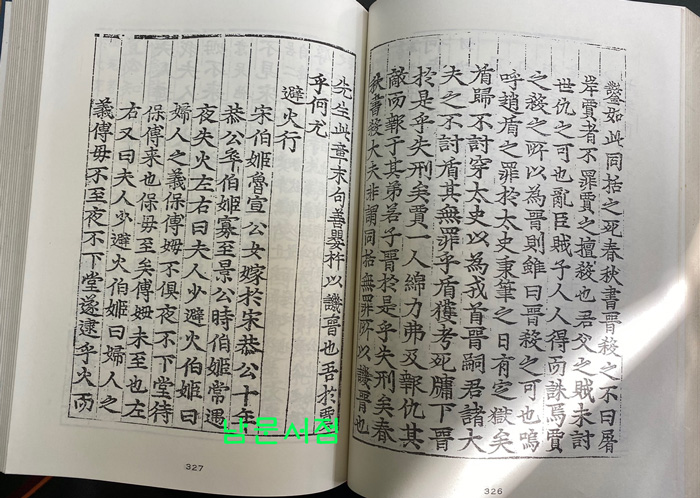 如此同括之死春秋書晋殺之不曰屠
岸賈者不罪賈之擅殺也君父之賊未討
世仇之可也亂臣賊子人人得而誅焉賈
之殺之所以為晋則雖曰晋殺之可也嗚
呼趙盾之罪於太史秉筆之日有定獄矣
盾歸不討穿太史以為戎首晋嗣君諸大
夫之不討盾其無罪乎盾獲考死牖下晋
於是乎失刑矣賈一人綿力弗及報仇其
敵而報于其弟若子晋於是乎失刑矣春
秋書殺大夫非謂同括無罪所以譏晋也
326
先生此章末句善嬰杵以譏晋也吾於賈
乎何尤
避火行
宋伯姬魯宣公女嫁於宋恭公十年
恭公卒伯姬寡至景公時伯姬常遇
夜失火左右曰夫人少避火伯姬曰
婦人之義保傅姆不俱夜不下堂待
保傅来也保母至矣傅姆未至也左
右又曰夫人少避火伯姬曰婦人之
義傅毋不至夜不下堂遂逮乎火而
327
남문서점